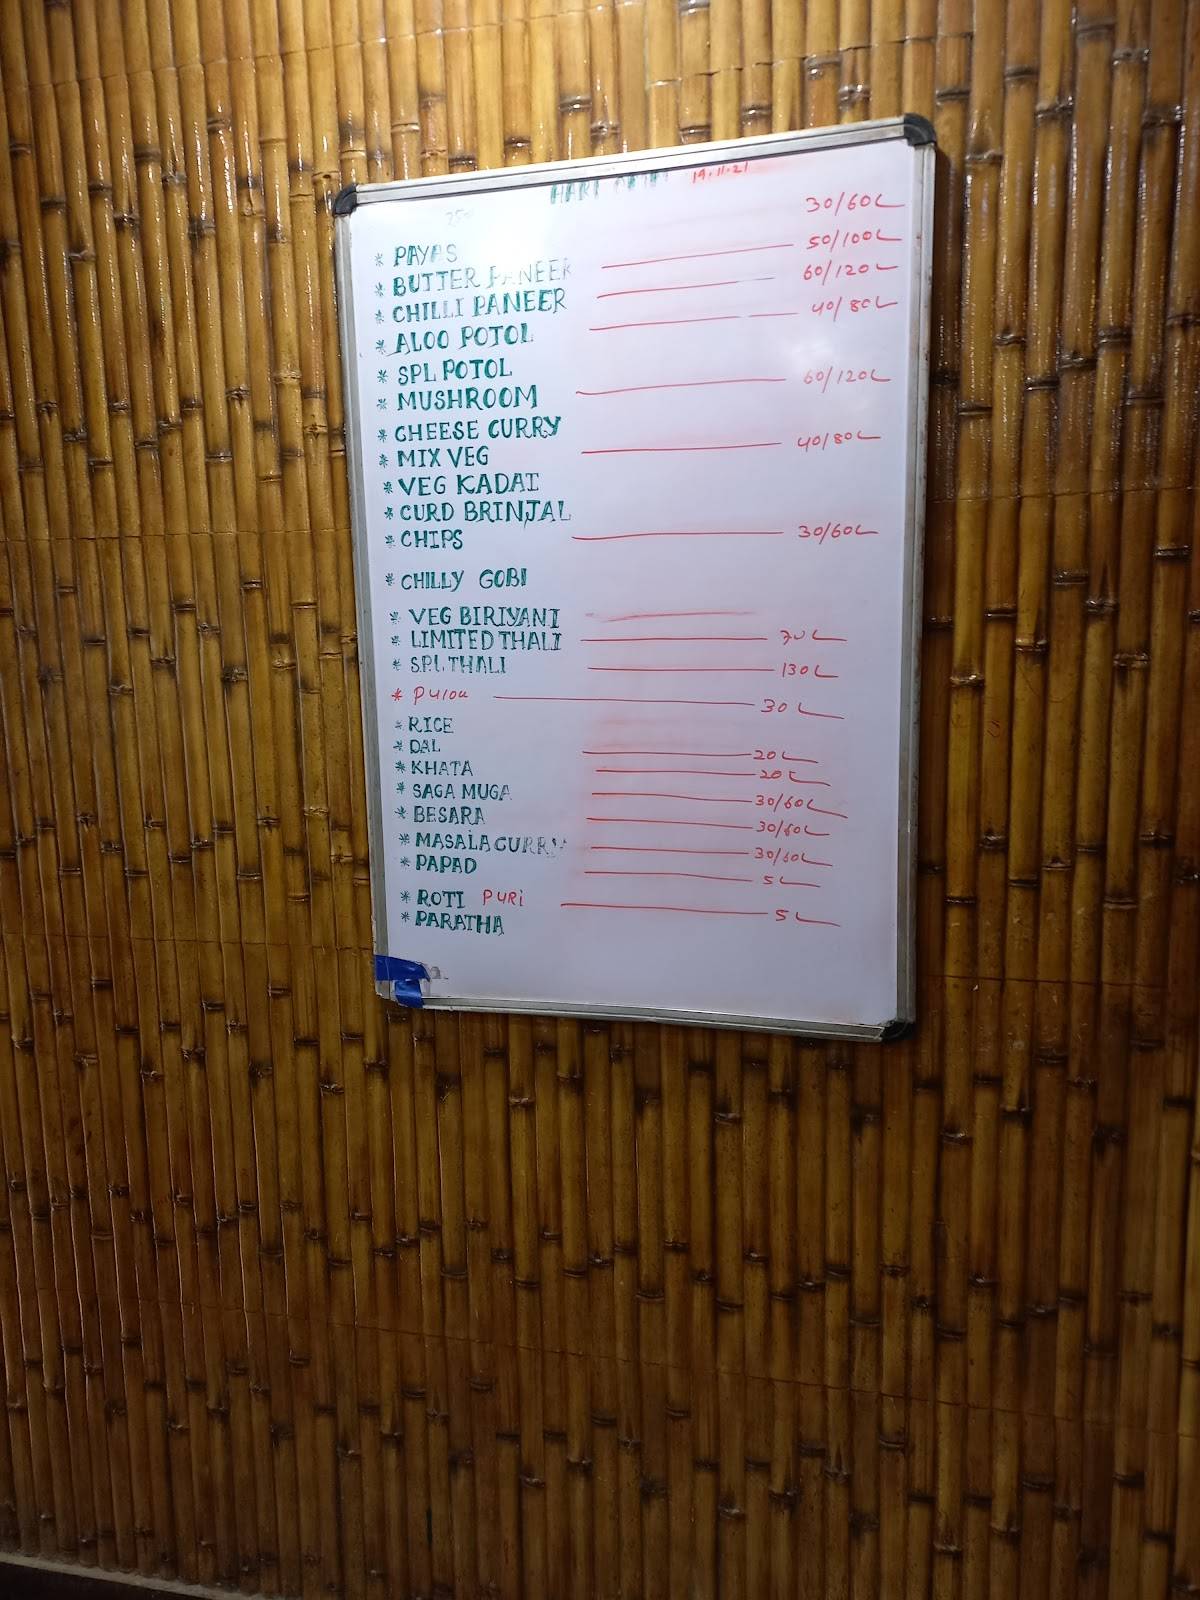 HARI 19.11.21
30/60
* PAYAS
* BUTTER PANEER 50/100
* CHILLI PANEER 60/120
* ALOO POTOL 40/80
* SPL POTOL
* MUSHROOM 60/120
* CHEESE CURRY
* MIX VEG 40/80
* VEG KADAI
* CURD BRINJAL
* CHIPS 30/60
* CHILLY GOBI
* VEG BIRIYANI
* LIMITED THALI 70
* SPL. THALI 130
* 30
* RICE
* DAL 20
* KHATA 20
* SAGA MUGA 30/60
* BESARA 30/60
* MASALA CURRY 30/60
* PAPAD 5
* ROTI PURi 5
* PARATHA